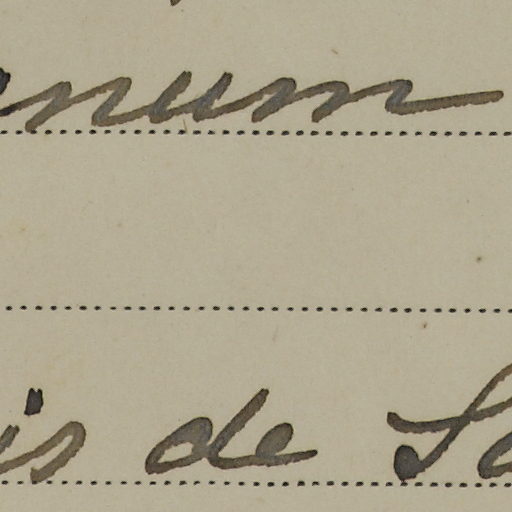 num
is de Sa